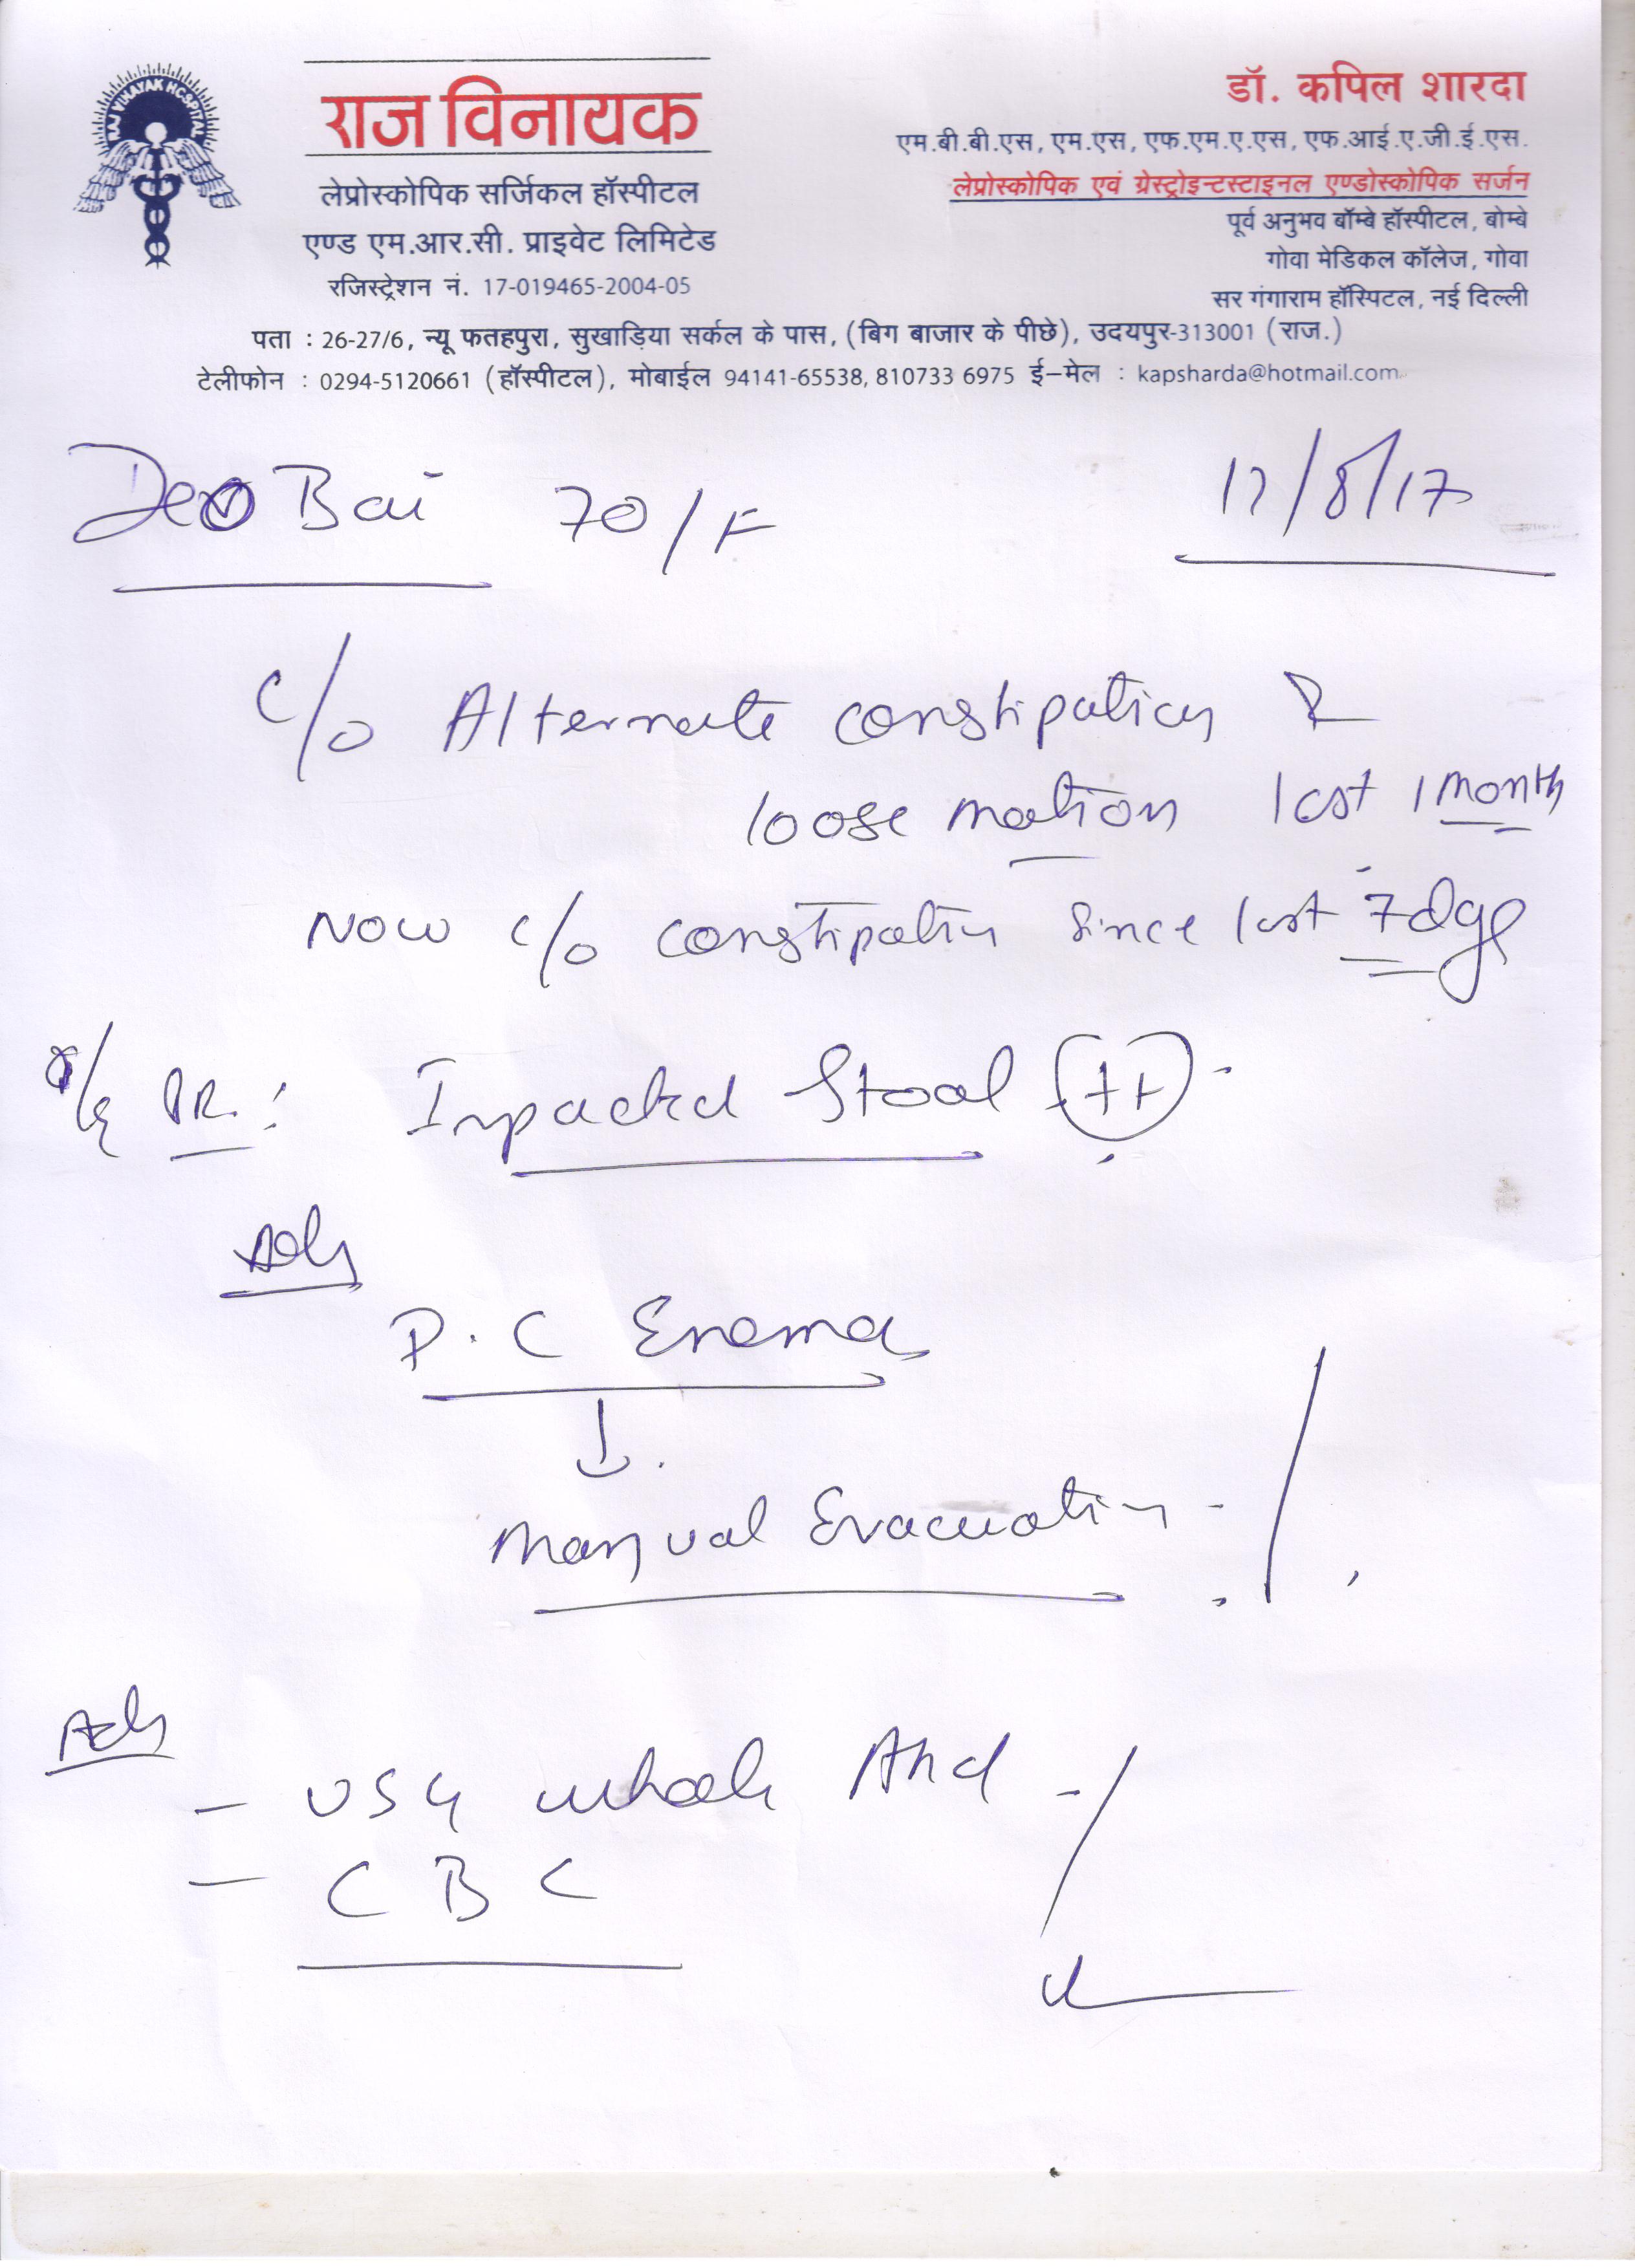 RAJ VINAYAK HOSPITAL
राज विनायक
लेप्रोस्कोपिक सर्जिकल हॉस्पीटल
एण्ड एम.आर.सी. प्राइवेट लिमिटेड
रजिस्ट्रेशन नं. 17-019465-2004-05
डॉ. कपिल शारदा
एम.बी.बी.एस, एम.एस, एफ.एम.ए.एस, एफ.आई.ए.जी.ई.एस.
लेप्रोस्कोपिक एवं ग्रेस्ट्रोइन्टस्टाइनल एण्डोस्कोपिक सर्जन
पूर्व अनुभव बॉम्बे हॉस्पीटल, बोम्बे
गोवा मेडिकल कॉलेज, गोवा
सर गंगाराम हॉस्पिटल, नई दिल्ली
पता : 26-27/6, न्यू फतहपुरा, सुखाड़िया सर्कल के पास, (बिग बाजार के पीछे), उदयपुर-313001 (राज.)
टेलीफोन : 0294-5120661 (हॉस्पीटल), मोबाईल 94141-65538, 810733 6975 ई-मेल : kapsharda@hotmail.com
Bai 70/F
/8/17
c/o Alternate constipation &
loose motion last 1 month
Now c/o constipation since last 7 days
O/E P.R. : Impacted Stool (++)
Adv
P.C Enema
↓
Manual Evacuation
Adv
- USG whole Abd
- CBC